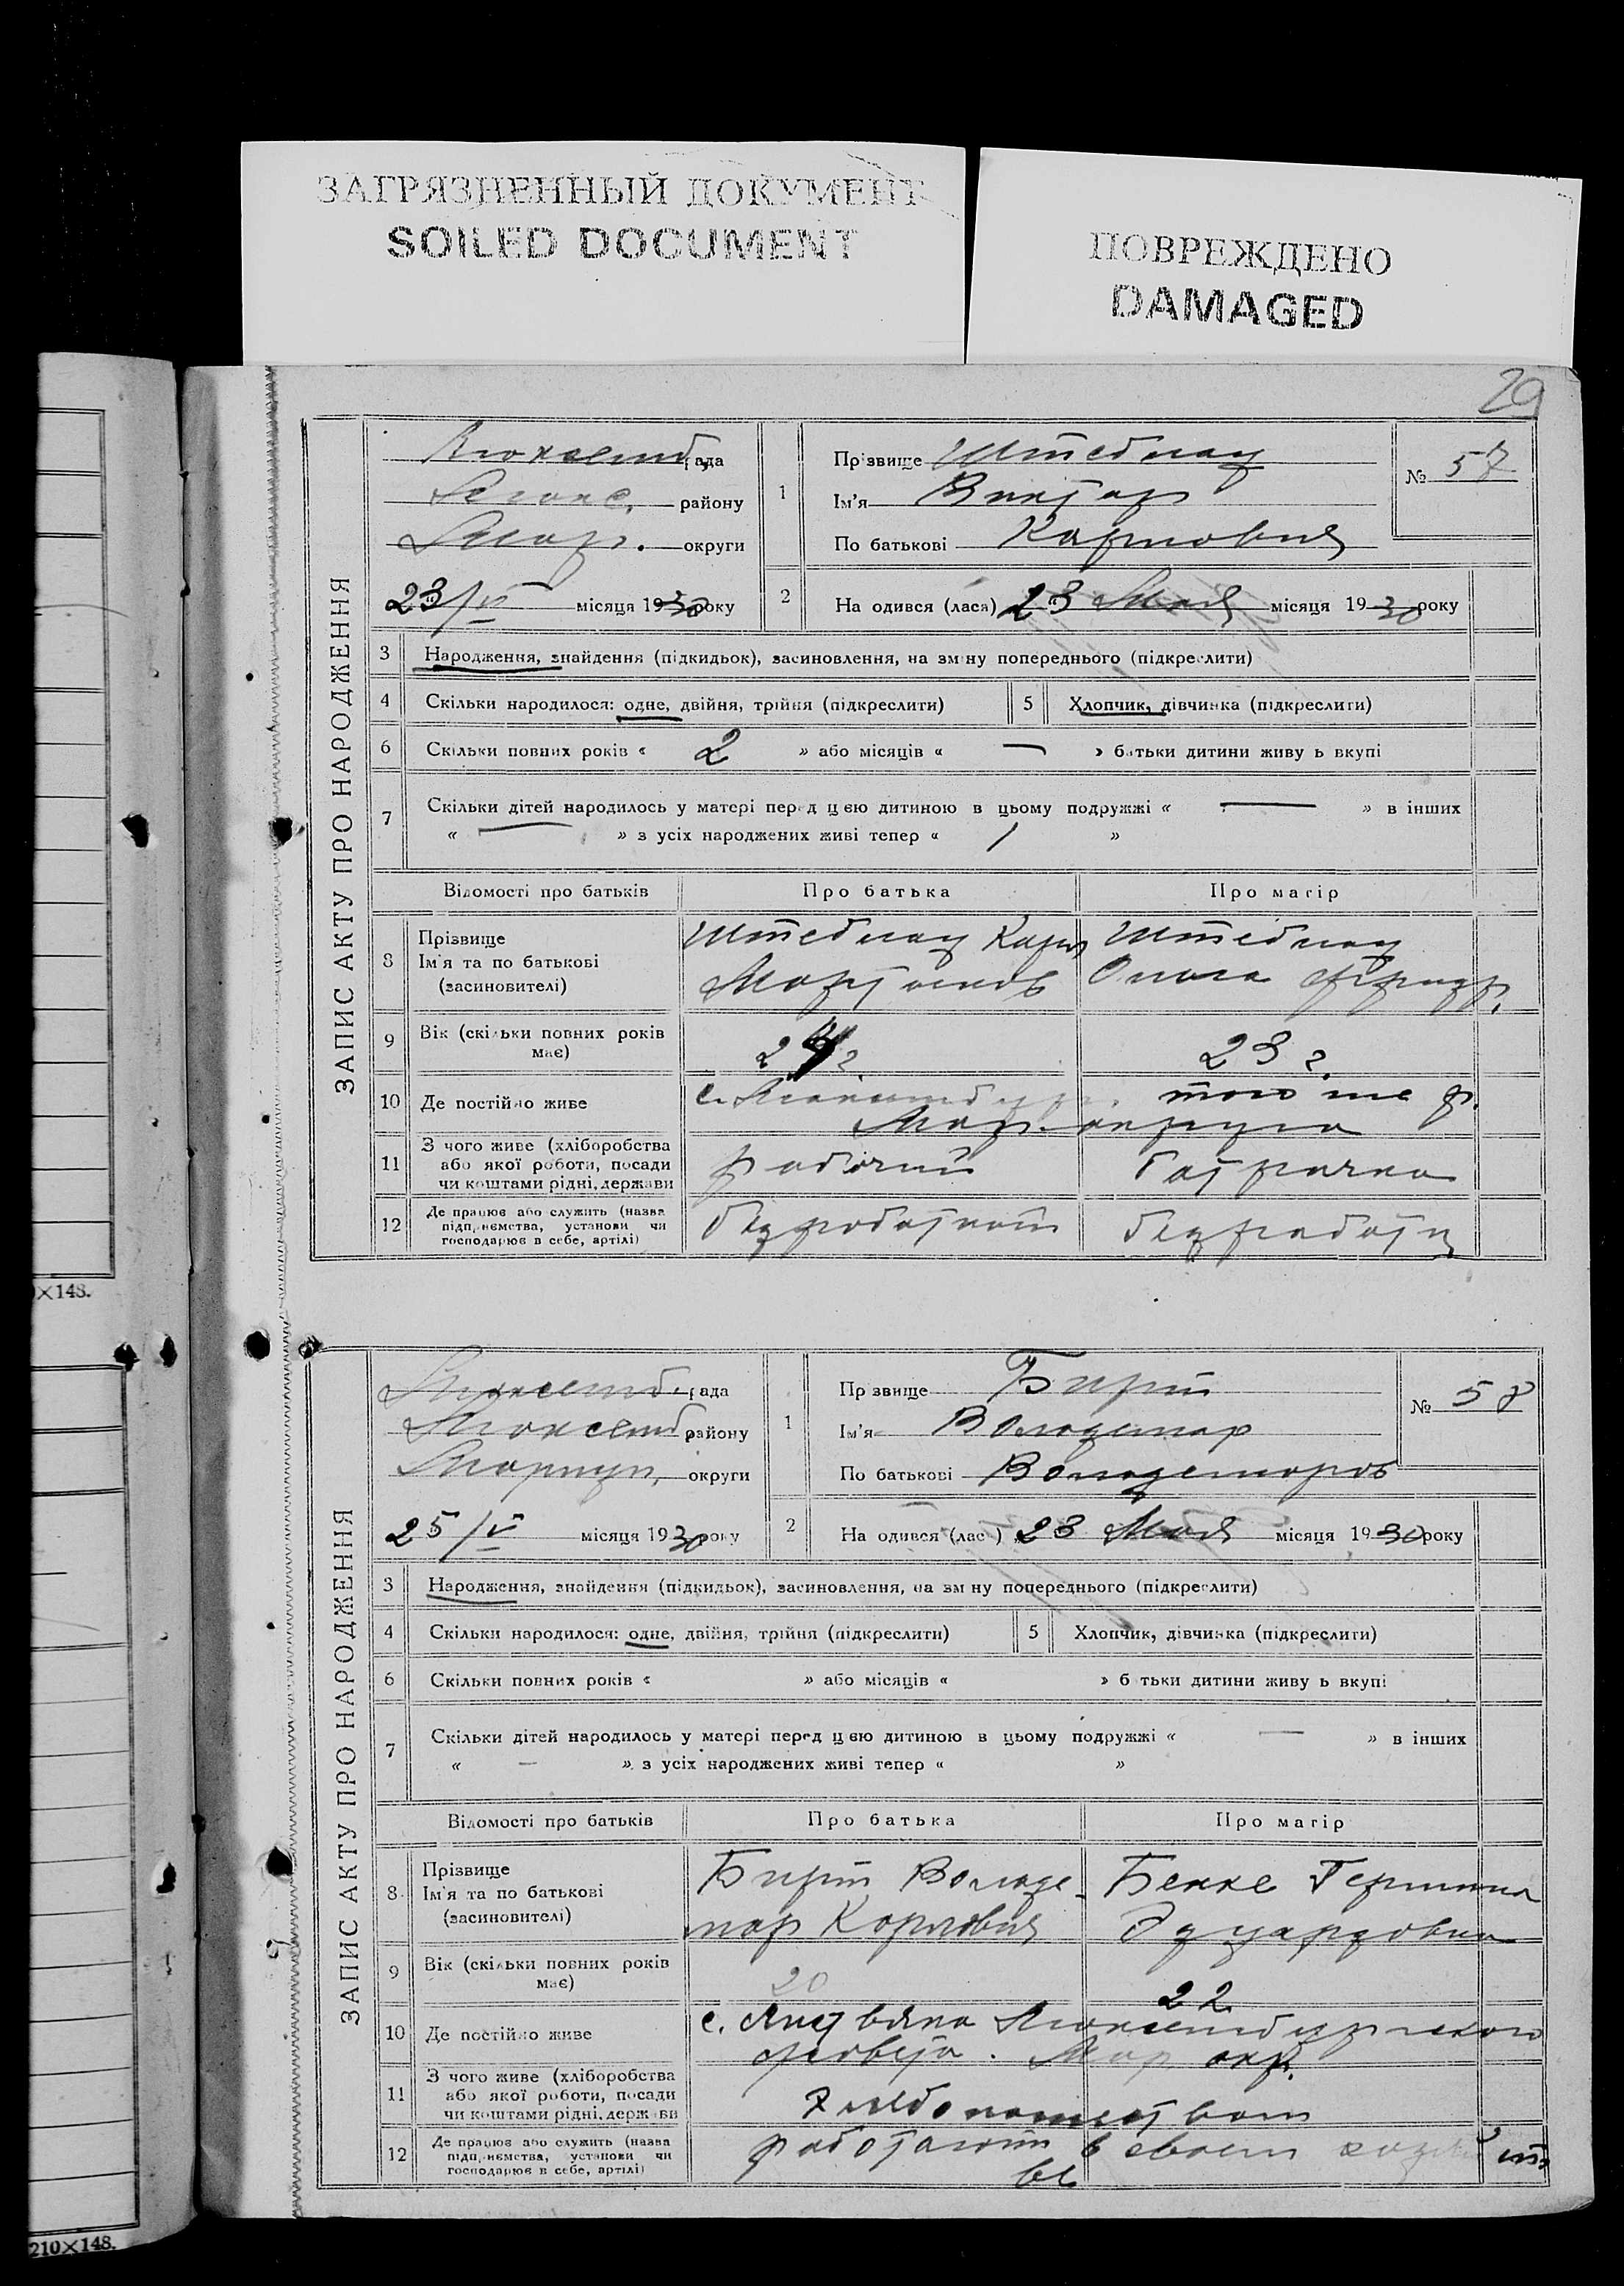 ЗАГРЯЗНЕННЫЙ ДОКУМЕНТ
SOILED DOCUMENT
ПОВРЕЖДЕНО
DAMAGED
29
ЗАПИС АКТУ ПРО НАРОДЖЕННЯ
Люксемб. рада
району
Мар. округи
23/V місяця 1930 року
1
Прізвище
Ім'я Виктор
По батькові Карлович
№ 57
2 Народився (лася) 23 Мая місяця 1930 року
3 Народження, знайдення (підкидьок), засиновлення, на зміну попереднього (підкреслити)
4 Скільки народилося: одне, двійня, трійня (підкреслити) 5 Хлопчик, дівчинка (підкреслити)
6 Скільки повних років « 2 » або місяців « — » батьки дитини живуть вкупі
7 Скільки дітей народилось у матері перед цією дитиною в цьому подружжі « — » в інших
« — » з усіх народжених живі тепер « 1 »
Відомості про батьків Про батька Про матір
8 Прізвище Ім'я та по батькові (засиновителі)
9 Вік (скільки повних років має) 23 г.
10 Де постійно живе того же р.
Мар. округа
11 З чого живе (хліборобства або якої роботи, посади чи коштами рідні, держави рабочий батрачка
12 Де працює або служить (назва підприємства, установи чи господарює в себе, артілі)
×148.
ЗАПИС АКТУ ПРО НАРОДЖЕННЯ
Люксемб. рада
Люксемб. району
Мариуп. округи
25/V місяця 1930 року
1
Прізвище Бирт
Ім'я Володемар
По батькові Володемаров
№ 58
2 Народився (лась) 23 Мая місяця 1930 року
3 Народження, знайдення (підкидьок), засиновлення, на зміну попереднього (підкреслити)
4 Скільки народилося: одне, двійня, трійня (підкреслити) 5 Хлопчик, дівчинка (підкреслити)
6 Скільки повних років « » або місяців « » батьки дитини живуть вкупі
7 Скільки дітей народилось у матері перед цією дитиною в цьому подружжі « — » в інших
« — » з усіх народжених живі тепер « »
Відомості про батьків Про батька Про матір
8 Прізвище Ім'я та по батькові (засиновителі) Бирт Володемар Карлович Бекке Гермина Эдуардовна
9 Вік (скільки повних років має) 20 22
10 Де постійно живе с. Люксембургского
Мар окр.
11 З чого живе (хліборобства або якої роботи, посади чи коштами рідні, держави хлебопашеством
12 Де працює або служить (назва підприємства, установи чи господарює в себе, артілі) работают в своем
210×148.